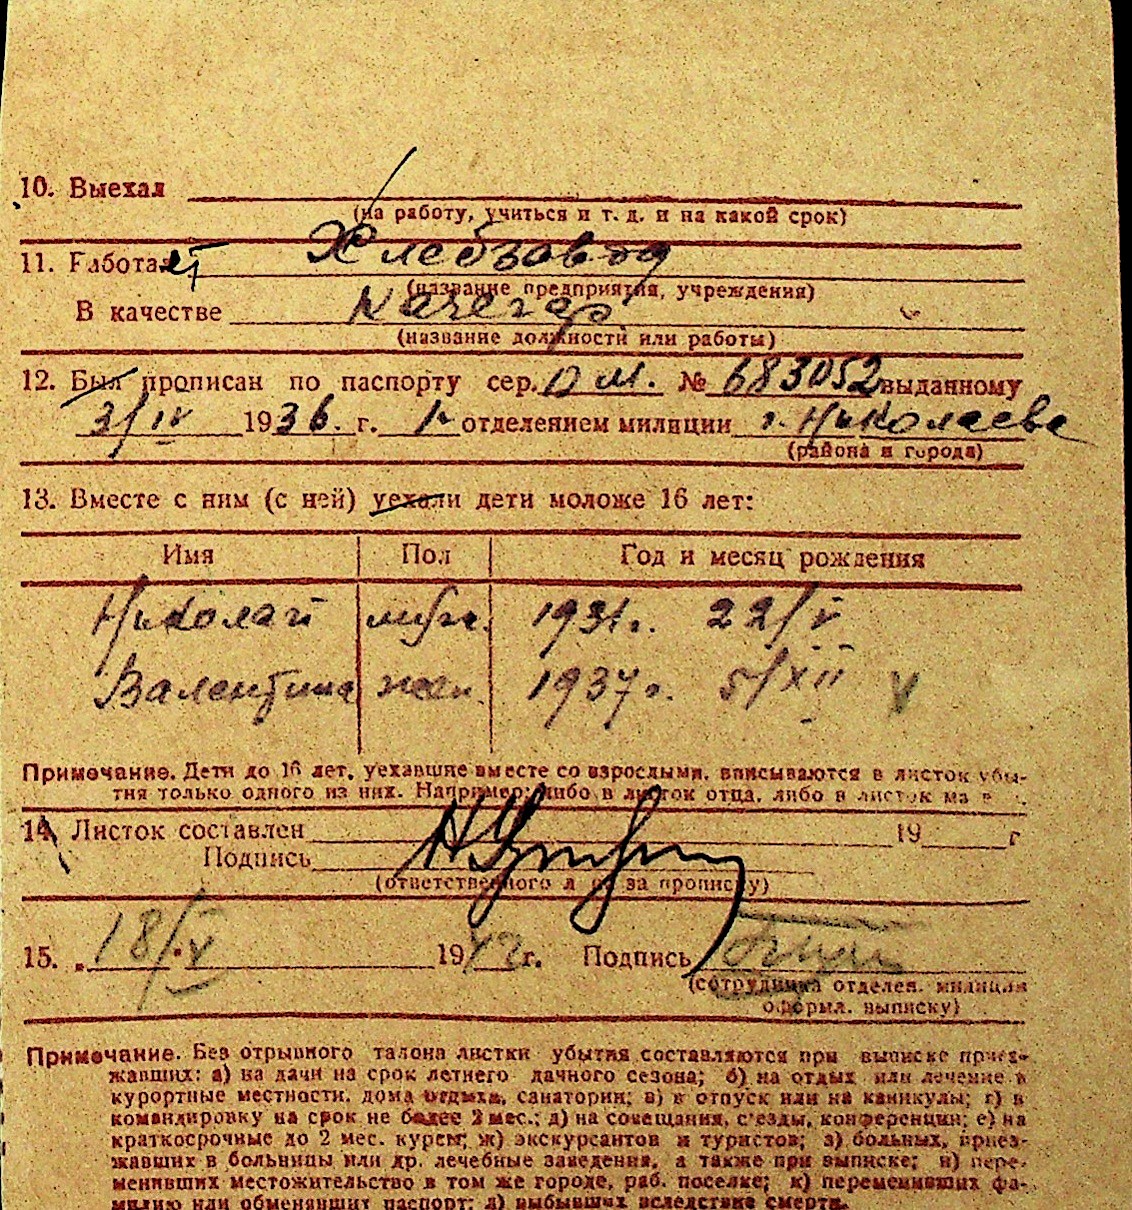 10. Выехал
(на работу, учиться и т. д. и на какой срок)
11. Работает Хлебзавод
(название предприятия, учреждения)
В качестве Качегар
(название должности или работы)
12. Был прописан по паспорту сер. О М. № 683052 выданному
3/IV 1936. г. 1м отделением милиции г. Николаева
(района и города)
13. Вместе с ним (с ней) уехали дети моложе 16 лет:
Имя Пол Год и месяц рождения
Николай муж. 1931г. 22/V
Валентина жен. 1937г. 5/XII V
Примечание. Дети до 16 лет, уехавшие вместе со взрослыми, вписываются в листок убы-
тия только одного из них. Например: либо в листок отца, либо в листок ма
14. Листок составлен 19 г
Подпись
(ответственного л за прописку)
15. 18/V 1942г. Подпись
(сотрудника отделен. милиции
оформл. выписку)
Примечание. Без отрывного талона листки убытия составляются при выписке приез-
жавших: а) на дачи на срок летнего дачного сезона; б) на отдых или лечение в
курортные местности, дома отдыха, санатории; в) в отпуск или на каникулы; г) в
командировку на срок не более 2 мес.; д) на совещания, с'езды, конференции; е) на
краткосрочные до 2 мес. курсы; ж) экскурсантов и туристов; з) больных, приез-
жавших в больницы или др. лечебные заведения, а также при выписке; и) пере-
менивших местожительство в том же городе, раб. поселке; к) переменивших фа-
милию или обменявших паспорт; л) выбывших вследствие смерти.